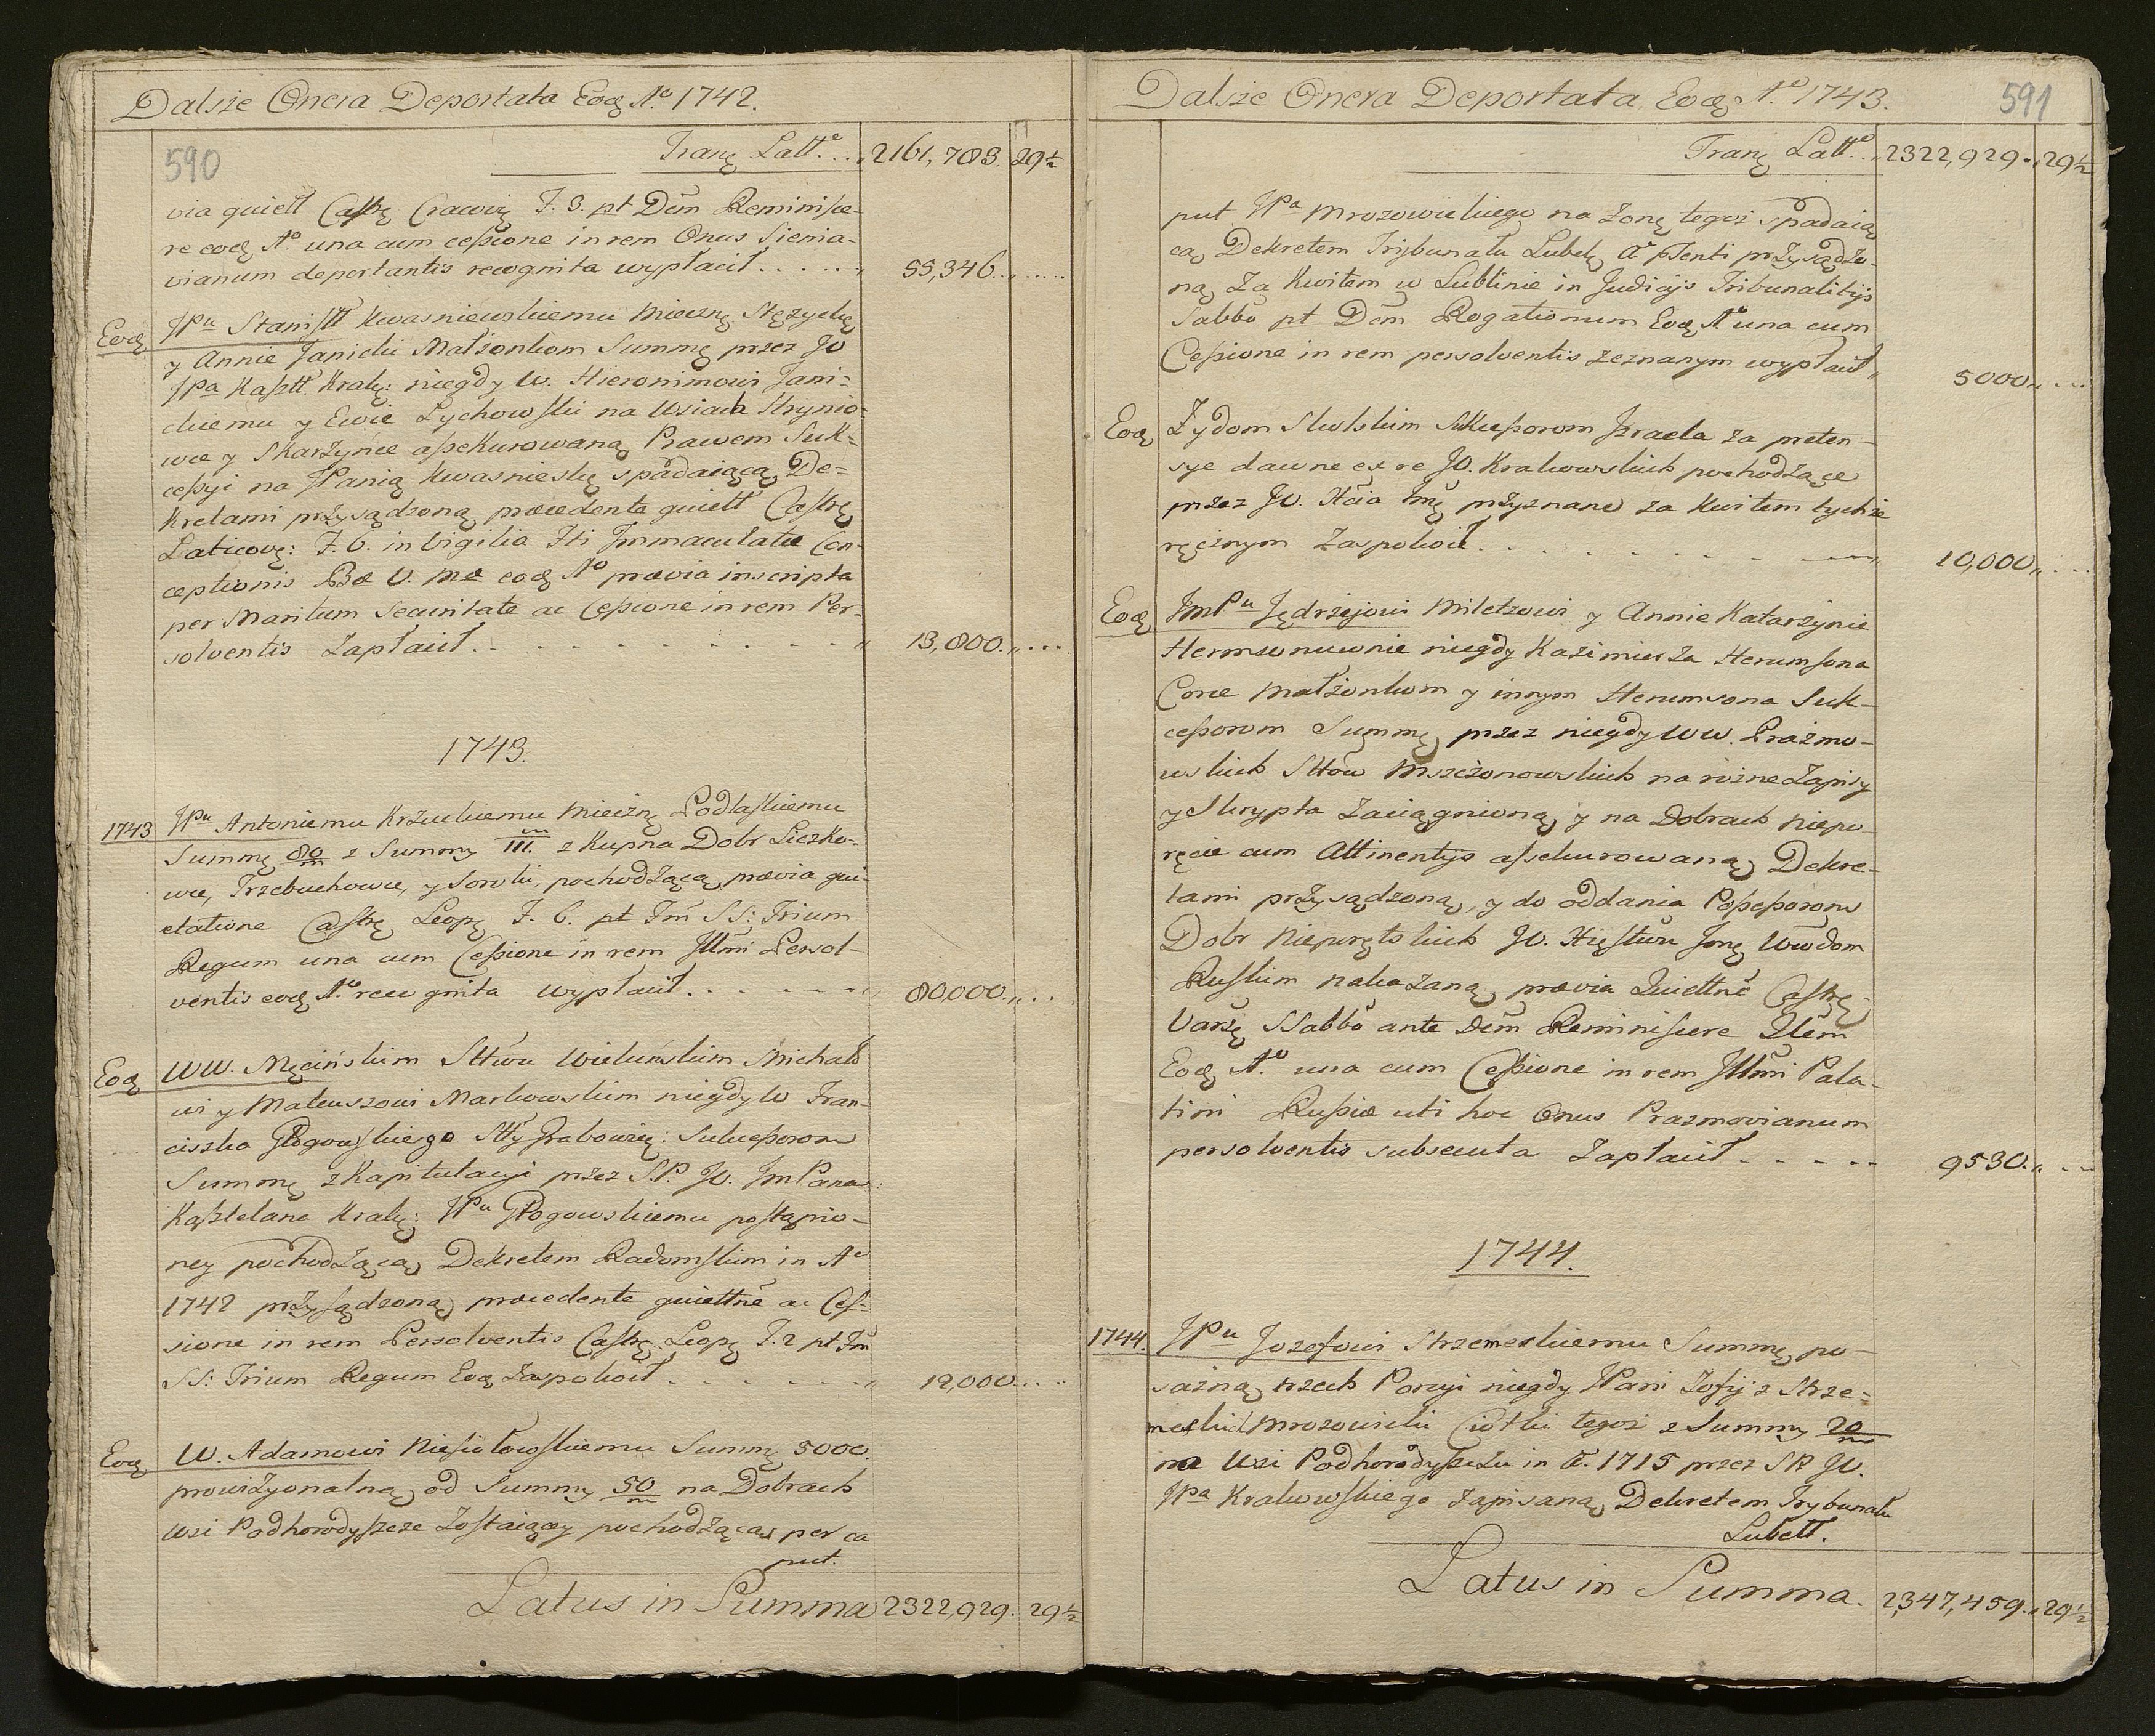 Dalsze Onera Deportata Eodę Aº 1742.
590
Tranę Latte... 2161,783. 29½
via quiett Castrę Cracovię F. 3. pt Dom Reminisce-
re eodę Aº una cum cessione in rem Onus Sienia-
vianum deportantis recognita wypłacił..... 55,346.......
Eodę JPu Stanistt Kwasniewskiemu Mieczn. Stężyckę
y Annie Janicki Małżonkom Summę przez JW
JPa Kasztt. Krakę: niegdy W. Hieronimowi Jani-
ckiemu y Ewie Lychowski na Wsiach Hrynio-
wce y Skarżynce assekurowaną Prawem Suk-
cessyi na JPanią Kwasnieskę spadaiącą, De-
kretami przysądzoną, præcedente quiett Castrę
Laticovę: F. 6. in Vigilia Fti Immaculatæ Con-
ceptionis Bæ V. Mæ eodę Aº prævia inscripta
per Maritum Securitate ac Cessione in rem Per-
solventis Zapłacił. . . . . . . . . . 13,800.....
1743.
1743 JPu Antoniemu Krzuckiemu Mieczn. Podlaskiemu
Summę 80/m z Summy III/m. z Kupna Dobr Liczko-
wce, Trzebuchowce, y Soroki, pochodzącą, prævia qui-
etatione Castrę Leopę F. 6. pt Fm SS: Trium
Regum una cum Cessione in rem Illmi Persol-
ventis eodę Aº recognita wypłacił. . . . . . 80,000....
Eodę WW. Męcińskim Sttwu Wieluńskim Michało-
wi y Mateuszowi Markowskim niegdy W Fran-
ciszka Głogowskiego Stty Grabowię: Sukcessorom
Summę z Kapitulacyi przez S.P. JW. JmPana
Kasztelana Krakę: JPu Głogowskiemu postąpio-
ney pochodzącą, Dekretem Radomskim in Aº
1742 przysądzoną, præcedente quiettne ac Ces-
sione in rem Persolventis Castrę Leopę F. 2 pt Fm
SS: Trium Regum Eodę Zaspokoił. . . . . . . 12,000.....
Eodę W. Adamowi Niesiołowskiemu Summę 5000.
prowizyonalną, od Summy 50/m na Dobrach
Wsi Podhorodyszcze Zostaiącey pochodzącą, per ca
put.
Latus in Summa 2322,929. 29½
Dalsze Onera Deportata, Eodę Aº 1743. 591
Tranę Latte... 2322,929. 29½
put JPa Mrozowickiego na Zonę tegoż Spadaią
cą, Dekretem Trybunału Lubelę Aº Psenti przysądzo-
ną, Za Kwitem w Lublinie in Judiciis Tribunalitijs
Sabbo pt Dom Rogationum Eodę Aº una cum
Cessione in rem persolventis zeznanym wypłacił 5000.....
Eodę Zydom Skolskim Sukcessorom Jzraela za preten-
sye dawne ex re JW. Krakowskich pochodzące
przez JW. Xcia Jmę przyznane za Kwitem tychże
ręcznym Zaspokoił. . . . . . . . . 10,000.....
Eodę JmPu Jędrzejowi Miletzowi y Annie Katarzynie
Hermsonuwnie niegdy Kazimierza Herumsona
Corce małżonkom y innym Herumsona Suk-
cessorom Summę przez niegdy WW. Prażmo-
wskich Sttow Mszczonowskich na rożne Zapisy
y Skrypta Zaciągnioną, y na Dobrach Niepo-
ręcie cum Attinentijs assekurowaną, Dekre-
tami przysądzoną, y do oddania Possessorom
Dobr Nieporętskich JW. Xięstwu Jmę Wwdom
Ruskim nakazaną, prævia Quiettne Castrę
Varsę SSabbo ante Dom Reminiscere Qlem
Eodę Aº una cum Cessione in rem Illmi Pala-
tini Russiæ uti hoc Onus Prazmovianum
persolventis subsecuta Zapłacił. . . . . 9530.....
1744.
1744. JPu Jozefowi Strzemeskiemu Summę po-
sażną, trzech Porcyi niegdy JPani Zofij z Strze-
meskich Mrozowicki Ciotki tegoż z Summy 20/m
na Wsi Podhorodyszczu in Aº 1715 przez SP JW.
JPa Krakowskiego zapisaną, Dekretem Trybunału
Lubett.
Latus in Summa. 2,347,459. 29½